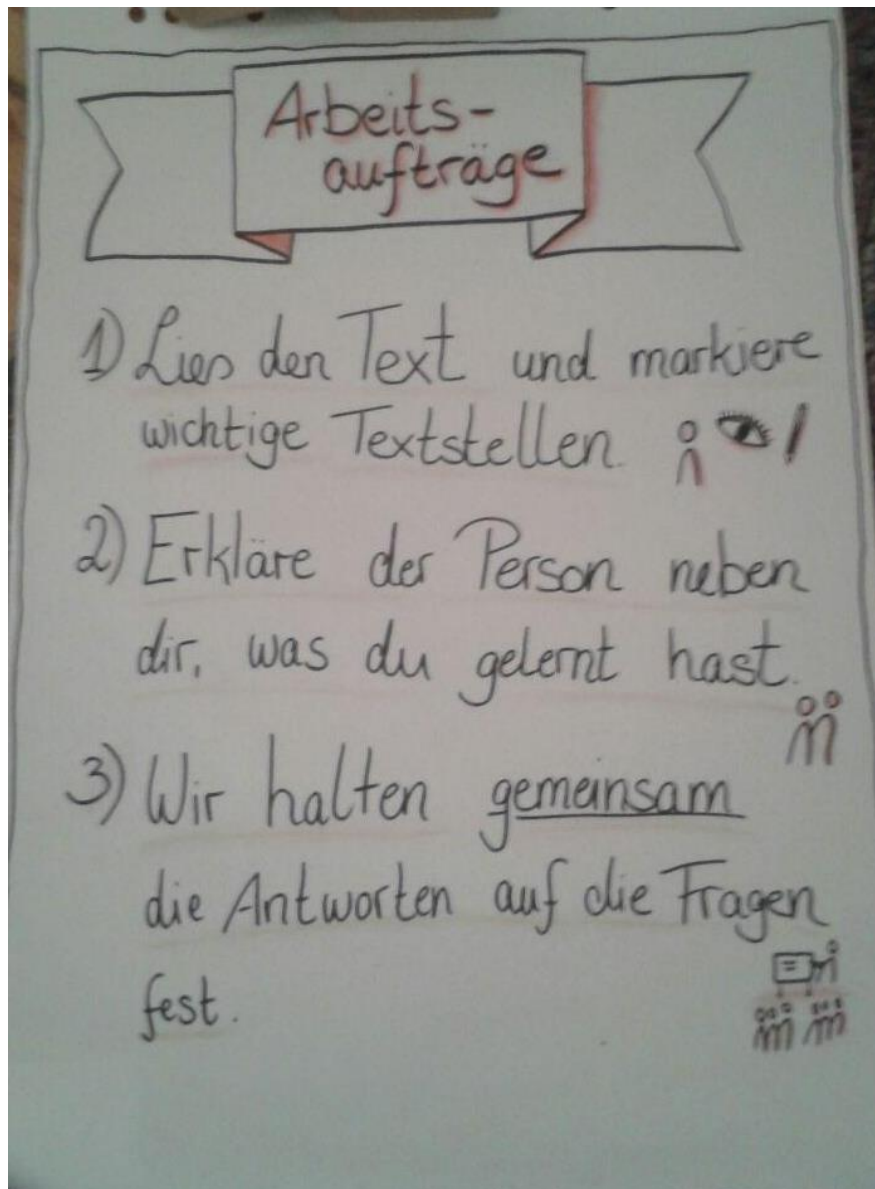 Arbeits-
aufträge
1) Lies den Text und markiere
wichtige Textstellen.
2) Erkläre der Person neben
dir, was du gelernt hast.
3) Wir halten gemeinsam
die Antworten auf die Fragen
fest.